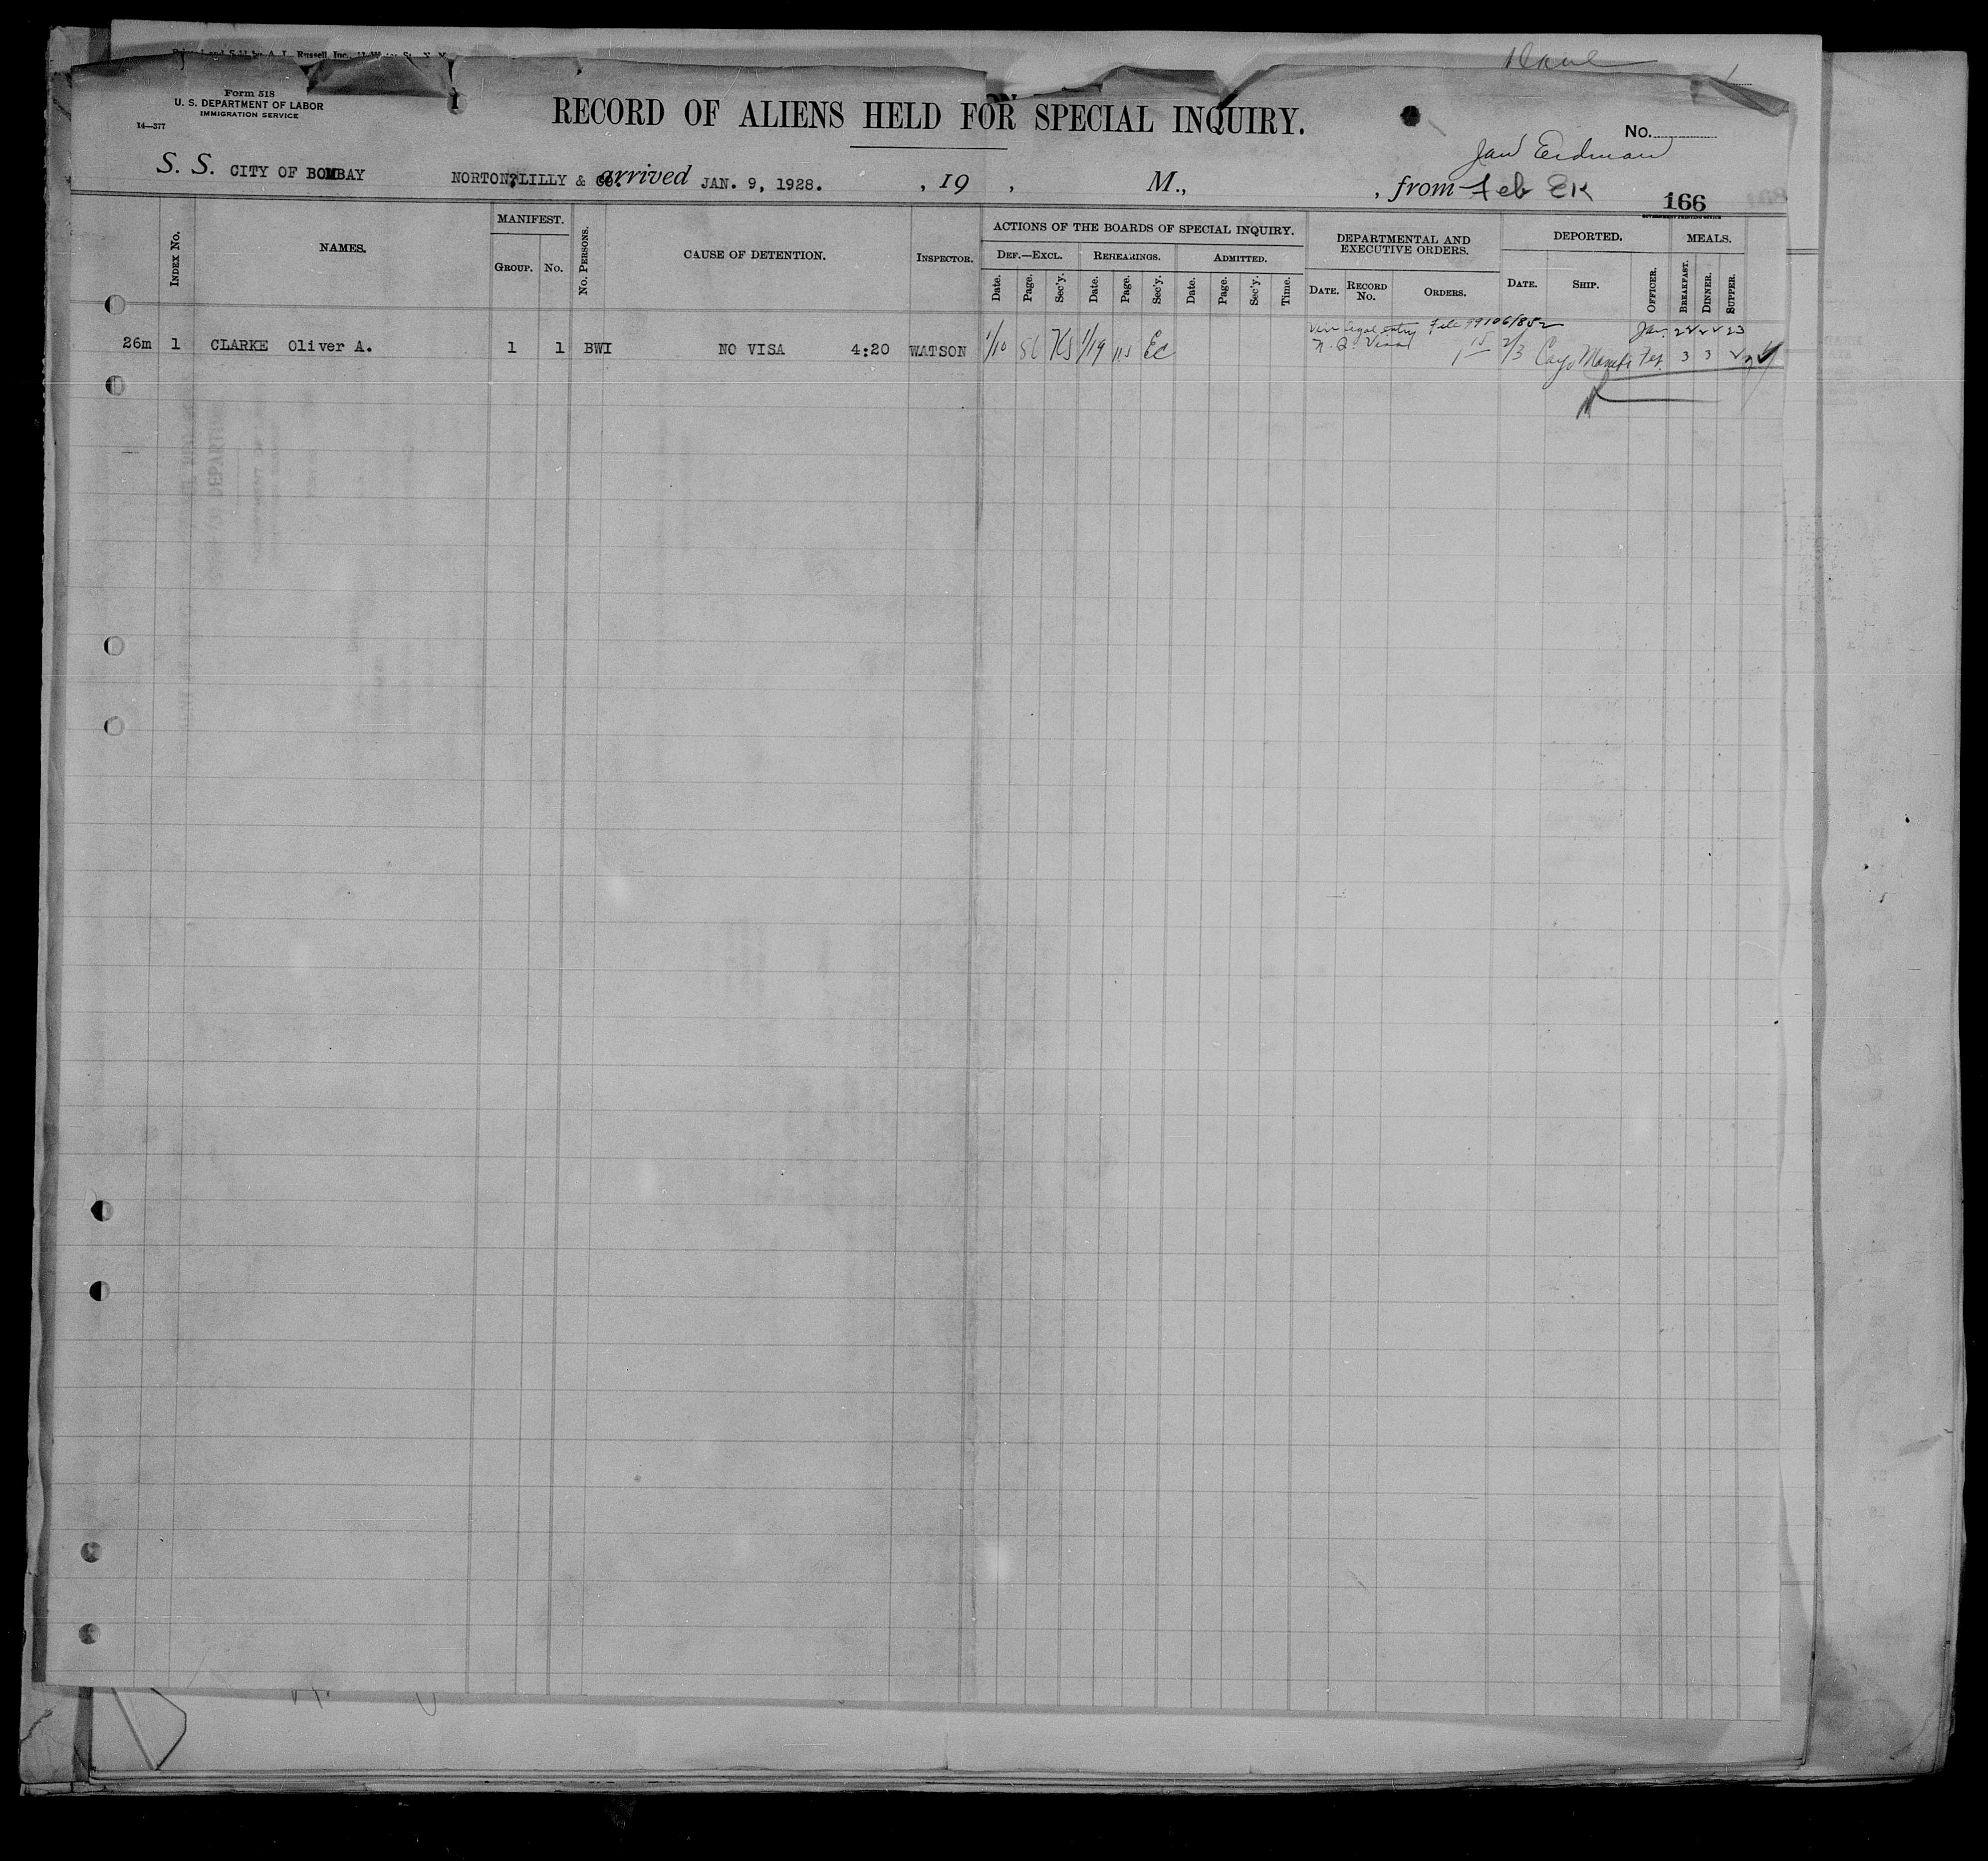 Form 518
U. S. DEPARTMENT OF LABOR
IMMIGRATION SERVICE
14—377
RECORD OF ALIENS HELD FOR SPECIAL INQUIRY.
No.
S. S. CITY OF BOMBAY NORTON, LILLY & CO. arrived JAN. 9, 1928. , 19 , M., , from Feb EK
Jan Erdman
166
INDEX NO. NAMES. MANIFEST. GROUP. NO. NO. PERSONS. CAUSE OF DETENTION. INSPECTOR.
ACTIONS OF THE BOARDS OF SPECIAL INQUIRY.
DEF.—EXCL. Date. Page. Sec'y. REHEARINGS. Date. Page. Sec'y. ADMITTED. Date. Page. Sec'y. Time.
DEPARTMENTAL AND EXECUTIVE ORDERS. DATE. RECORD NO. ORDERS.
DEPORTED. DATE. SHIP. OFFICER.
MEALS. BREAKFAST. DINNER. SUPPER.
legal entry File 99106/852 Jan. 22 22 23
26m 1 CLARKE Oliver A. 1 1 BWI NO VISA 4:20 WATSON 1/10 56 KS 1/19 115 EC 2/3 Cayo Mambi Feb. 3 3 2